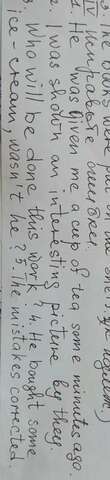 IV Исправьте ошибки.
1. He was given me a cup of tea some minutes ago.
2. I was shown an interesting picture by they.
3. Who will be done this work? 4. He bought some
ice-cream, wasn't he? 5. The mistakes corrected.